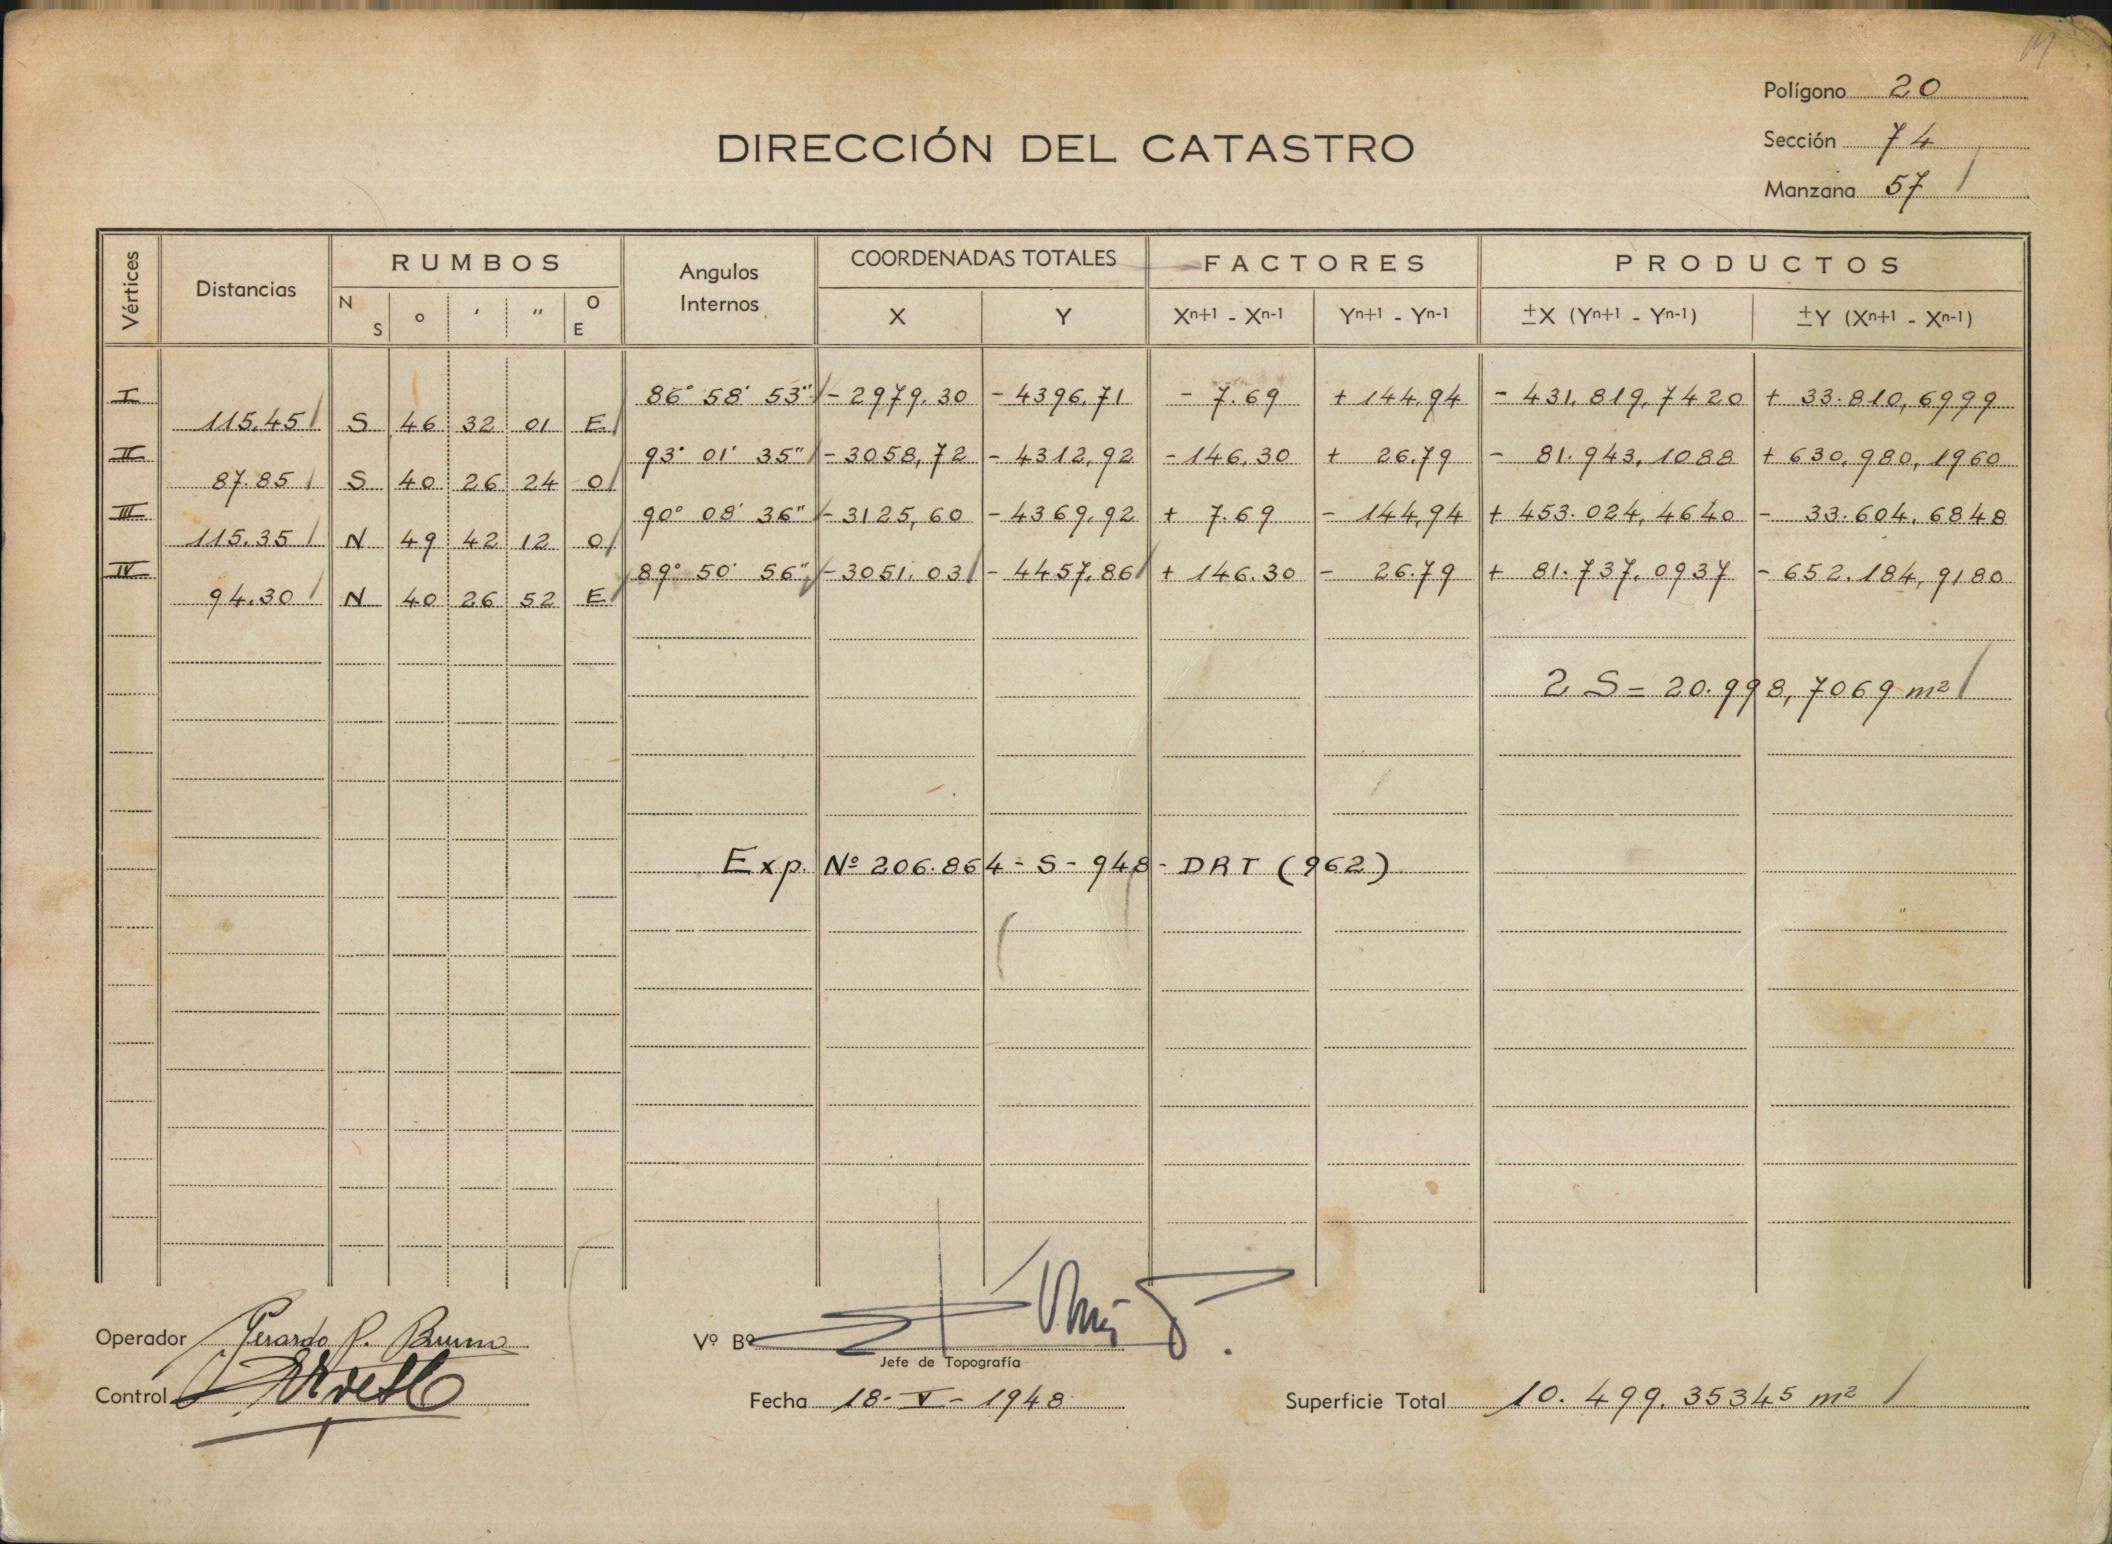 Polígono 20
DIRECCIÓN DEL CATASTRO
Sección 74
Manzana 57
Vértices Distancias RUMBOS Angulos Internos COORDENADAS TOTALES FACTORES PRODUCTOS
N S ° ' " O E X Y Xn+1 - Xn-1 Yn+1 - Yn-1 ±X (Yn+1 - Yn-1) ±Y (Xn+1 - Xn-1)
I 86° 58' 53" - 2979.30 - 4396,71 - 7.69 + 144.94 - 431.819,7420 + 33.810,6999
115.45 S 46 32 01 E
II 93° 01' 35" - 3058,72 - 4312,92 - 146,30 + 26.79 - 81.943,1088 + 630,980,1960
87.85 S 40 26 24 O
III 90° 08' 36" - 3125,60 - 4369,92 + 7.69 - 144,94 + 453.024,4640 - 33.604,6848
115.35 N 49 42 12 O
IV 89° 50' 56" - 3051.03 - 4457,86 + 146.30 - 26.79 + 81.737,0937 - 652.184,9180
94.30 N 40 26 52 E
2 S = 20.998,7069 m²
Exp. Nº 206.864 - S - 948 - DRT (962)
Operador Gerardo P. Bruno
Vº Bº
Jefe de Topografía
Control
Fecha 18 - V - 1948
Superficie Total 10.499.35345 m²